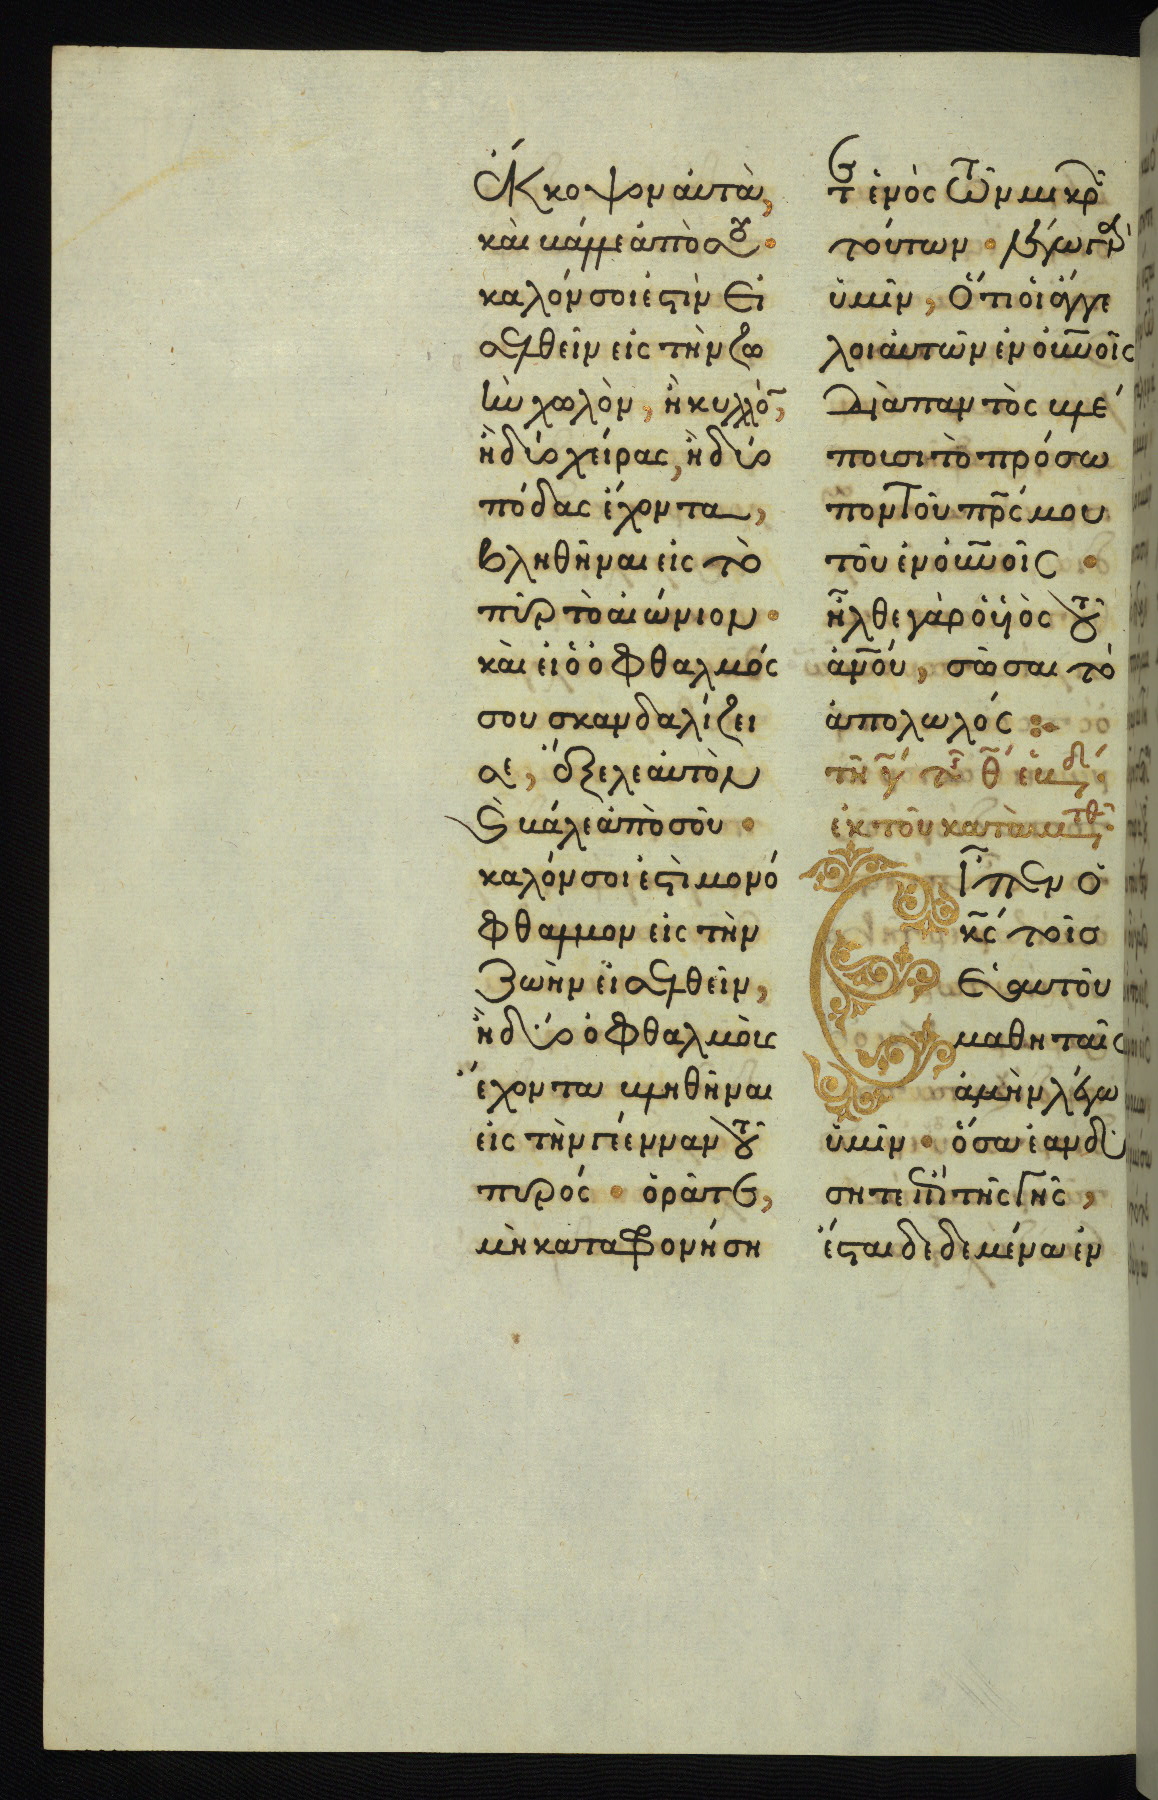 ἔκκοψον αυτὰ,
καὶ βάλλε ἀπὸ σοῦ.
καλόν σοι ἐστὶν εἰ
σελθεῖν εἰς τὴν ζω
ὴν χωλὸν, ἢ κυλλὸν,
ἢ δύο χείρας, ἢ δύο
πόδας ἔχοντα,
βληθῆναι εἰς τὸ
πῦρ τὸ αἰώνιον.
καὶ εἰ ὁ ὀφθαλμός
σου σκανδαλίζει
σε, ἔξελε αὐτὸν
καὶ βάλε ἀπὸ σοῦ.
καλόν σοι ἐστὶ μονό
φθαλμον εἰς τὴν
ζωὴν εἰσελθεῖν,
ἢ δύο ὀφθαλμοὺς
ἔχοντα βληθῆναι
εἰς τὴν γέενναν τοῦ
πυρός. ὁρᾶτε,
μὴ καταφρονήση
τε ἑνὸς τῶν μικρῶν
τούτων. λέγω γὰρ
ὑμῖν, ὅτι οἱ ἄγγε
λοι αὐτῶν ἐν οὐνοῖς
διὰ παντὸς βλέ
πουσι τὸ πρόσω
πον τοῦ πρς μου
τοῦ ἐν οὐνοῖς.
ἦλθε γὰρ ὁ υἱὸς τοῦ
ἀνου, σῶσαι τὸ
ἀπολωλός:
τῇ γ τῆς θ ἑβδ.
ἐκ τοῦ κατὰ ματθ.
Εἶπεν ὁ
κς τοῖς
ἑαυτοῦ
μαθηταῖς
ἀμὴν λέγω
ὑμῖν. ὅσα ἐὰν δή
σητε ἐπὶ τῆς γῆς,
ἔσται δεδεμένα ἐν